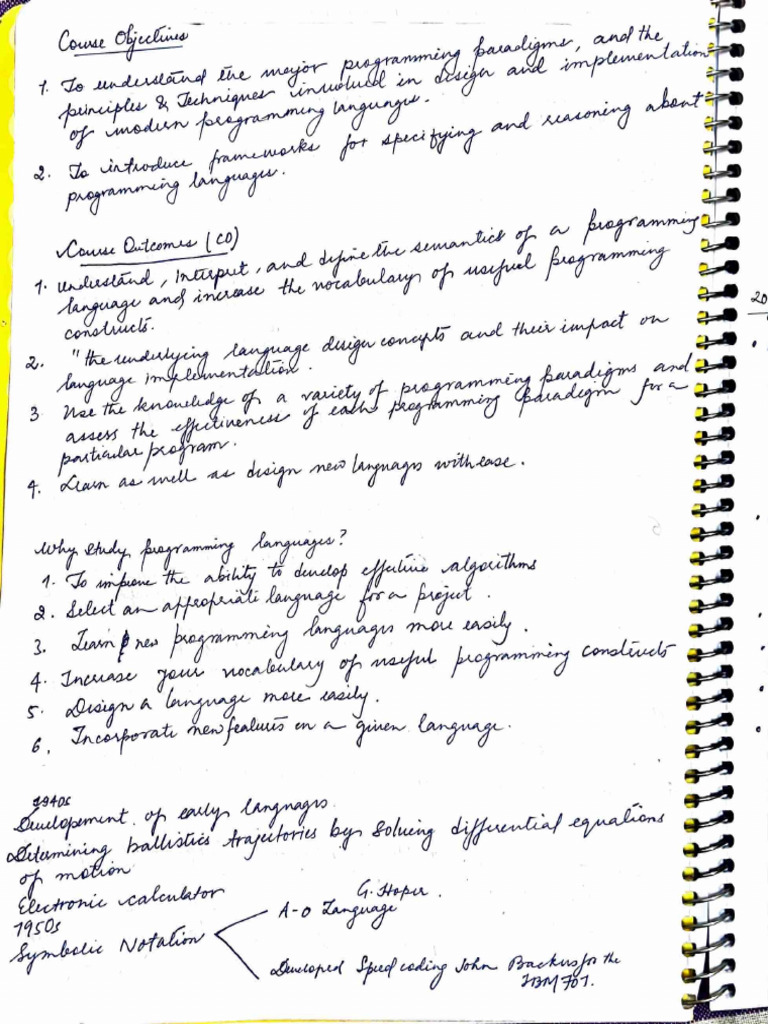 Course Objectives
1. To understand the major programming paradigms, and the
principles & Techniques involved in design and implementation
of modern programming languages.
2. To introduce frameworks for specifying and reasoning about
programming languages.
Course Outcomes (CO)
1. understand, Interpret, and define the semantics of a programming
language and increase the vocabulary of useful programming
constructs.
2. " the underlying language design concepts and their impact on
language implementation.
3 Use the knowledge of a variety of programming paradigms and
assess the effectiveness of each programming paradigm for a
particular program.
4. Learn as well as design new languages with ease.
Why study programming languages?
1. To improve the ability to develop effective algorithms
2. Select an appropriate language for a project.
3. Learn new programming languages more easily.
4. Increase your vocabulary of useful programming constructs
5. Design a language more easily.
6. Incorporate new features in a given language.
1940s
Developement of early languages.
Determining ballistics trajectories by solving differential equations
of motion
Electronic calculator
1950s
Symbolic Notation
G. Hoper.
A-0 Language
Developed Speed coding John Backus for the
IBM 701.
20